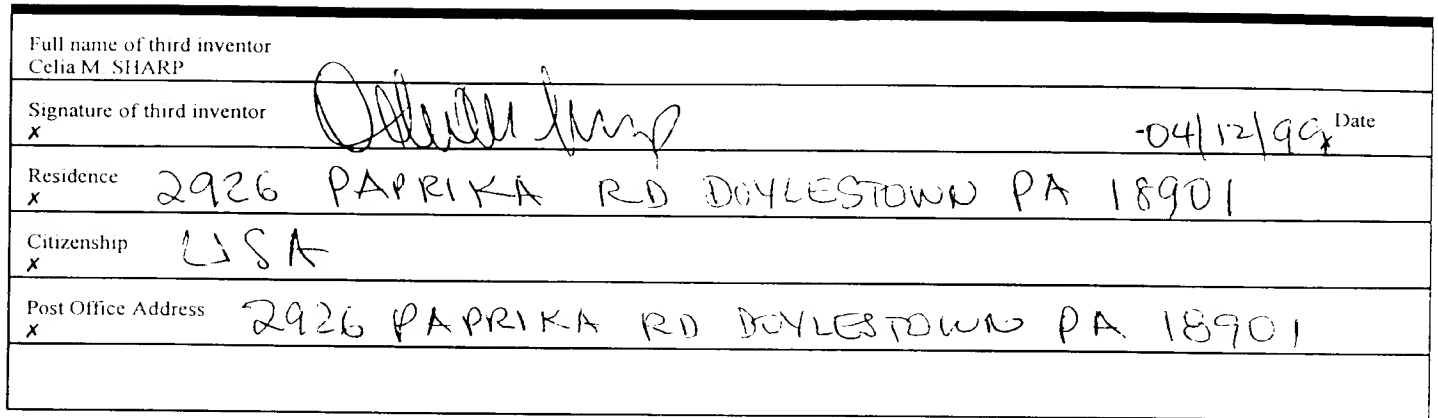 Full name of third inventor
Celia M. SHARP
Signature of third inventor
x 04/12/99 x Date
Residence
x 2926 PAPRIKA RD DOYLESTOWN PA 18901
Citizenship
x USA
Post Office Address
x 2926 PAPRIKA RD DOYLESTOWN PA 18901